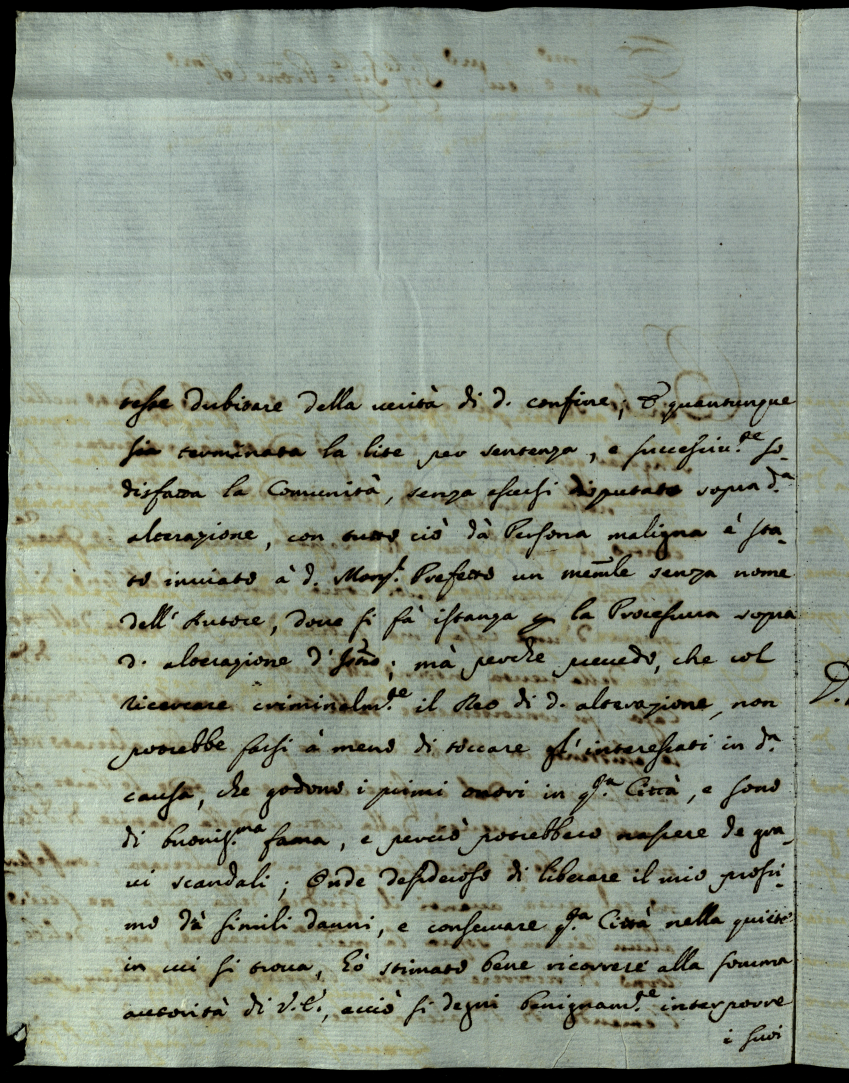 tesse dubitare della verità di d. confine; E quantunque
sia terminata la lite per sentenza, e successivam.te so-
disfatta la Comunità, senza essersi disputato sopra d.a
alterazione, con tutto ciò dà Persona maligna è sta-
to inviato à d. Mons.r Prefetto un mem.le senza nome
dell'Autore, dove si fà istanza p la Processura sopra
d. alterazione d'; mà perche prevedo, che col
ricercare criminalm.te il Reo di d. alterazione, non
potrebbe farsi à meno di toccare gl'interessati in d.a
causa, che godono i primi onori in q.ta Città, e sono
di buoniss.ma fama, e perciò potrebbero nascere de gra-
vi scandali; Onde desideroso di liberare il mio prossi-
mo dà simili danni, e conservare q.ta Città nella quiete
in cui si trova, hò stimato bene ricorrere alla somma
autorità di V.E., acciò si degni benignam.te interporre
i suoi